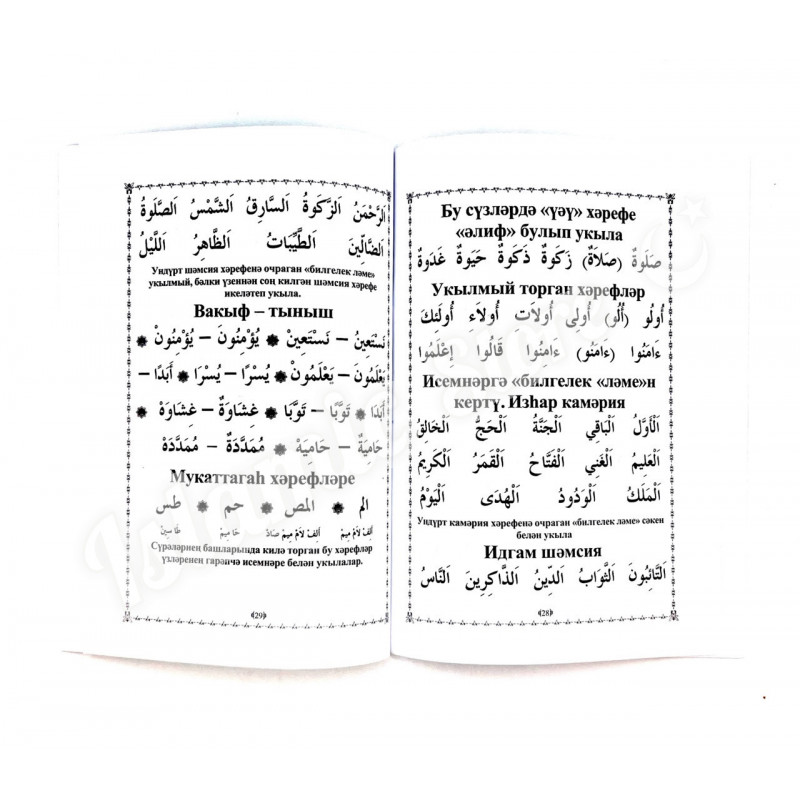 Бу сүзләрдә «үәү» хәрефе
«әлиф» булып укыла
صَلَوةٌ (صَلاَةٌ) زَكَوةٌ ذَكَوةٌ حَيَوةٌ غَدَوةٌ
Укылмый торган хәрефләр
أُولُو (أُلُو) أُولِى أُولاَتِ أُولاَءِ أُولَئِكَ
ءَامَنُوا (ءَامَنُو) ءَامِنُوا قَالُوا إِعْلَمُوا
Исемнәргә «билгелек «ләме»н
кертү. Изһар камәрия
اَلْأَوَّلُ اَلْبَاقِي اَلْجَنَّةُ اَلْحَجُّ اَلْخَالِقُ
اَلْعَلِيمُ اَلْغَنِي اَلْفَتَّاحُ اَلْقَمَرُ اَلْكَرِيمُ
اَلْمَلَكُ اَلْوَدُودُ اَلْهُدَى اَلْيَوْمُ
Ундүрт камәрия хәрефенә очраган «билгелек ләме» сәкен
белән укыла
Идгам шәмсия
اَلتَائِبُونَ اَلثَّوَابُ اَلدِّينُ اَلذَّاكِرِينَ اَلنَّاسُ
(28)
اَلرَّحْمَنُ اَلزَّكَوةُ اَلسَّارِقُ اَلشَّمْسُ اَلصَّلَوةُ
اَلضَّالِّينَ اَلطَّيِّبَاتُ اَلظَّاهِرُ اَللَّيْلُ
Ундүрт шәмсия хәрефенә очраган «билгелек ләме»
укылмый, бәлки үзеннән соң килгән шәмсия хәрефе
икеләтеп укыла.
Вакыф – тыныш
نَسْتَعِينُ – نَسْتَعِينْ ✸ يُؤْمِنُونَ – يُؤْمِنُونْ ✸
يَعْلَمُونَ – يَعْلَمُونْ ✸ يُسْرًا – يُسْرَا ✸ أَبَدًا –
أَبَدَا ✸ تَوَّبًا – تَوَّبَا ✸ غِشَاوَةٌ – غِشَاوَهْ ✸
حَامِيَةٌ – حَامِيَهْ ✸ مُمَدَّدَةٌ – مُمَدَّدَهْ ✸
Мукаттагаһ хәрефләре
الم ✸ المص ✸ حم ✸ طس
اَلِفْ لاَمْ مِيمْ اَلِفْ لاَمْ مِيمْ صَادْ حَا مِيمْ طَا سِينْ
Сүрәләрнең башларында килә торган бу хәрефләр
үзләренең гарәпчә исемнәре белән укылалар.
(29)